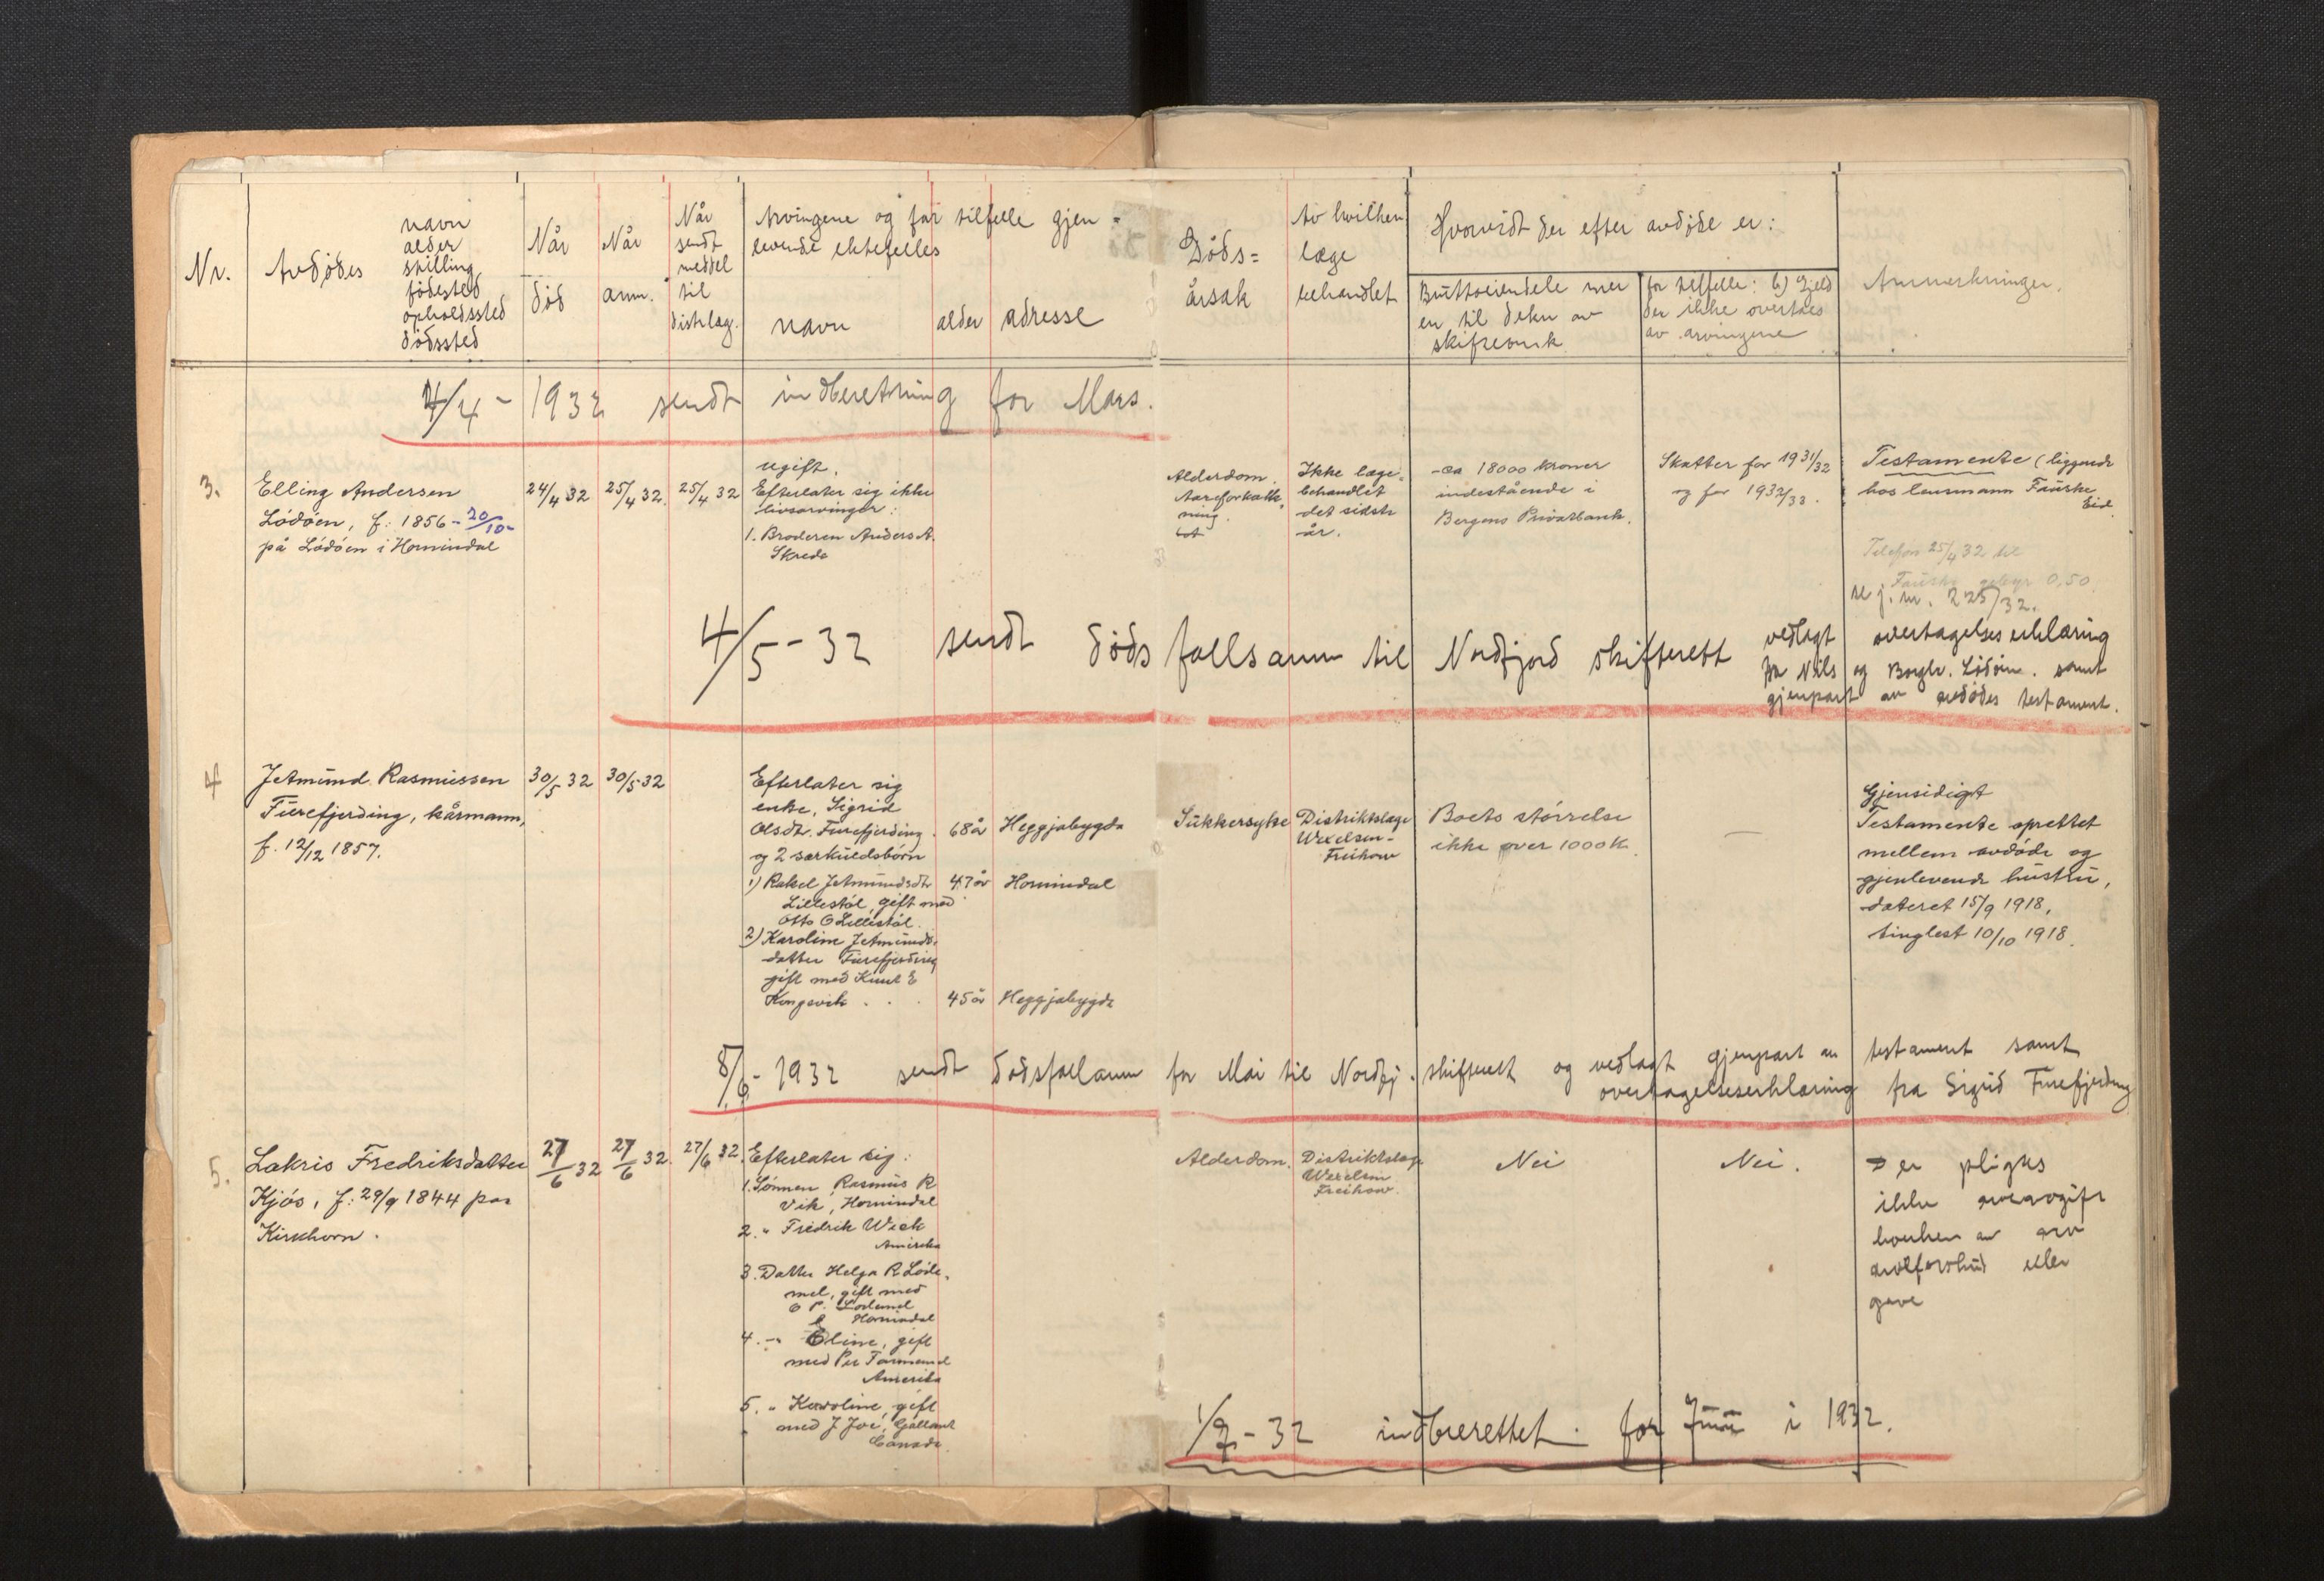 Nr.
Avdødes
navn
alder
stilling
fødested
opholdssted
dødssted
Når
død
Når
anm.
Når
sendt
meddel
til
distrlæg.
Arvingene og for tilfelle gjen-
levende ektefelles
navn
alder
adresse
Døds=
årsak
Av hvilken
læge
behandlet
Hvorvidt der efter avdøde er:
Buttoeiendele mer
en til deken av
for tilfelle: b) Gjeld
der ikke overtaes
av arvingene
Anmerkninger.
4/4 - 1932 sendt indberetning for Mars.
3.
Elling Andersen
Lødøen, f. 1856 - 20/10-
på Lødøen i Hornindal
24/4 32
25/4 32.
25/4 32
ugift.
Efterlater sig ikke
livsarvinger:
1. Broderen Anders A.
Skrede
Alderdom.
Aareforkalk-
ning.
Ikke læge-
behandlet
det sidste
år.
ca 18000 kroner
indestående i
Bergens Privatbank.
Skatter for 1931/32
og for 1932/33.
Testamente (liggende
hos lensmann Fauske
Eid
Telefon 25/4 32 til
Fauske gebyr 0,50
se j.nr. 225/32.
4/5 - 32 sendt dødsfallsanm til Nordfjord skifterett vedlagt overtagelseserklæring
fra Nils og Borghi. Lødøen. samt
gjenpart av avdødes testament.
4
Jetmund Rasmussen
Furefjerding, kårmann,
f. 12/12 1857.
30/5 32
30/5 32
Efterlater sig
enke, Sigrid
Olsdt. Furefjerding. 68 år Heggjabygda
og 2 særkuldsbørn
1) Rakel Jetmundsdtr 47 år Hornindal
Lillestøl, gift med
Otto O Lillestøl.
2) Karoline Jetmunds-
datter Furefjerding
gift med Knut E
Kongsvik . . . 45 år Heggjabygda
Sukkersyke
Distriktslæge
Wexelsen-
Freihow
Boets størrelse
ikke over 1000 K.
—
Gjensidigt
Testamente oprettet
mellem avdøde og
gjenlevende hustru,
dateret 15/9 1918,
tinglest 10/10 1918.
8/6 - 1932 sendt dødsfallanm for Mai til Nordfj. skifterett og vedlagt gjenpart av testament samt
overtagelseserklæring fra Sigrid Furefjerding
5.
Lakris Fredriksdatter
Kjøs, f. 29/9 1844 paa
Kirkhorn.
27/6 32
27/6 32.
27/6 32.
Efterlater sig:
1. Sønnen Rasmus R
Vik, Hornindal
2. " Fredrik Wick
Amerika
3. Datter Helga R Løde-
mel, gift med
O P. Lødemel
Hornindal
4. -" Eline, gift
med Per
Amerika
5. " Karoline, gift
med J Joe, Gallant
Canada.
Alderdom.
Distriktslæge
Wexelsen
Freihow.
Nei
Nei.
er pligtes
ikke arveavgift
hverken av arv
arveforskud eller
gave
1/7 - 32 indberettet for Juni i 1932.